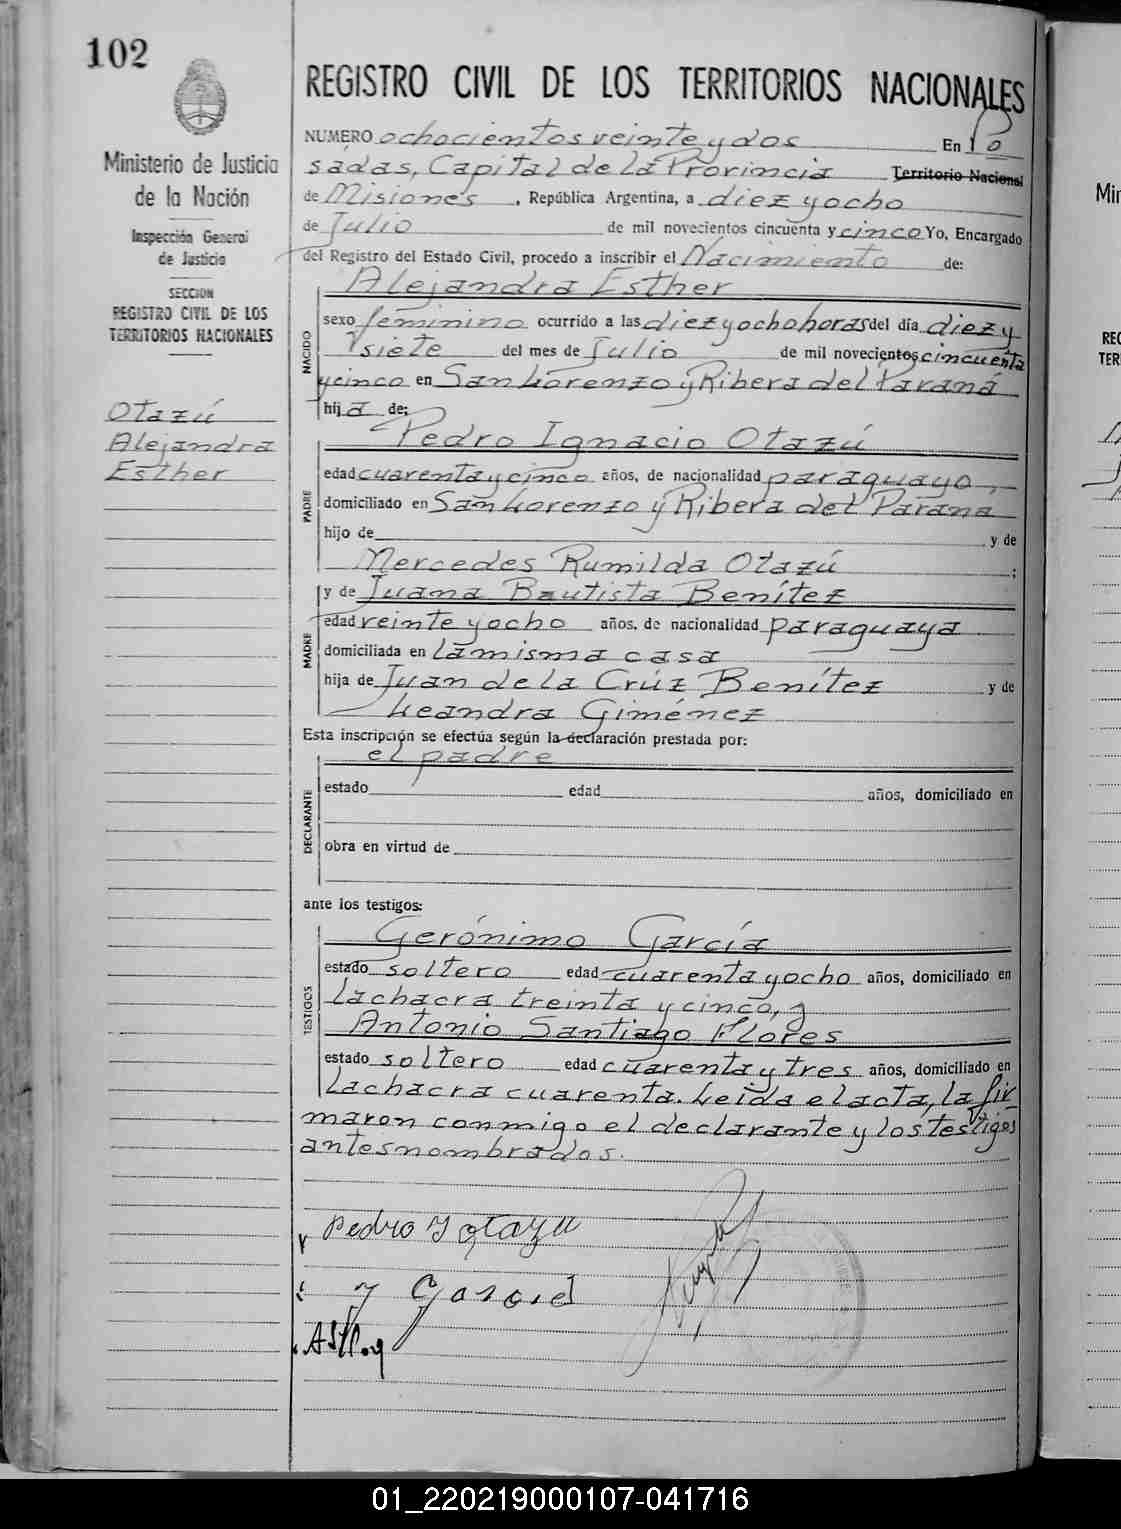 102
Ministerio de Justicia
de la Nación
Inspección General
de Justicia
SECCION
REGISTRO CIVIL DE LOS
TERRITORIOS NACIONALES
Otazú
Alejandra
Esther
REGISTRO CIVIL DE LOS TERRITORIOS NACIONALES
NUMERO ochocientos veinte y dos En Po
sadas, Capital de la Provincia Territorio Nacional
de Misiones, República Argentina, a diez y ocho
de Julio de mil novecientos cincuenta y cinco Yo, Encargado
del Registro del Estado Civil, procedo a inscribir el Nacimiento de:
Alejandra Esther
NACIDO
sexo femenino ocurrido a las diez y ocho horas del día diez y
siete del mes de Julio de mil novecientos cincuenta
y cinco en San Lorenzo y Ribera del Paraná
hija de:
Pedro Ignacio Otazú
PADRE
edad cuarenta y cinco años, de nacionalidad paraguayo,
domiciliado en San Lorenzo y Ribera del Paraná
hijo de y de
Mercedes Rumilda Otazú ;
y de Juana Bautista Benítez
MADRE
edad veinte y ocho años, de nacionalidad paraguaya
domiciliada en la misma casa
hija de Juan de la Crúz Benítez y de
Leandra Giménez
Esta inscripción se efectúa según la declaración prestada por:
el padre
DECLARANTE
estado edad años, domiciliado en
obra en virtud de
ante los testigos:
Gerónimo García
TESTIGOS
estado soltero edad cuarenta y ocho años, domiciliado en
la chacra treinta y cinco, y
Antonio Santiago Flores
estado soltero edad cuarenta y tres años, domiciliado en
la chacra cuarenta. Leída el acta, la fir
maron conmigo el declarante y los testigos
antes nombrados.
Pedro Y Otazu
01_220219000107-041716